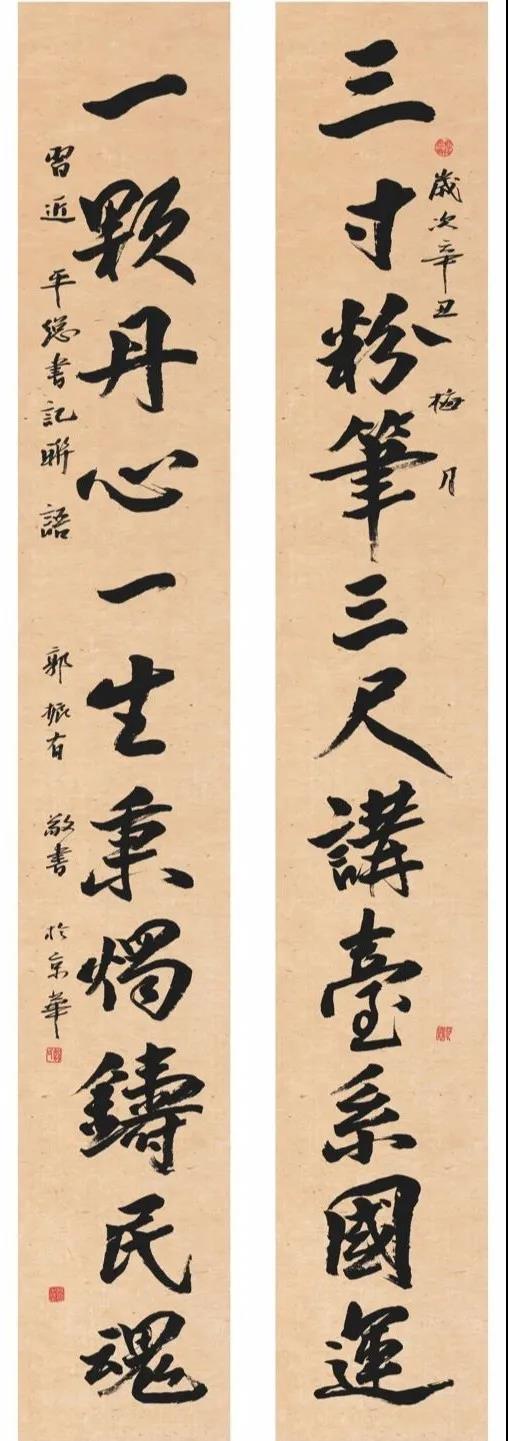 三寸粉筆三尺講臺系國運
歲次辛丑 梅月
一顆丹心一生秉燭鑄民魂
習近平總書記聯語 郭振有 敬書 於京華